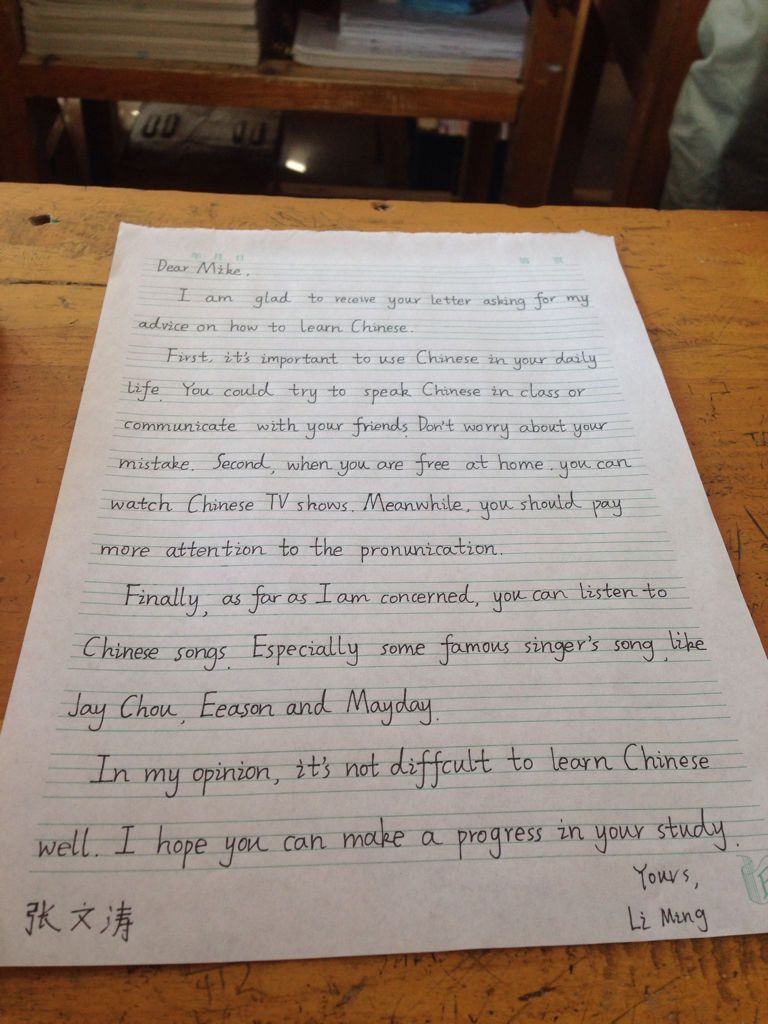 年 月 日
Dear Mike,
I am glad to receive your letter asking for my
advice on how to learn Chinese.
First, it's important to use Chinese in your daily
life. You could try to speak Chinese in class or
communicate with your friends. Don't worry about your
mistake. Second, when you are free at home, you can
watch Chinese TV shows. Meanwhile, you should pay
more attention to the pronunication.
Finally, as far as I am concerned, you can listen to
Chinese songs. Especially some famous singer's song, like
Jay Chou, Eeason and Mayday.
In my opinion, it's not diffcult to learn Chinese
well. I hope you can make a progress in your study.
Yours,
Li Ming
张文涛